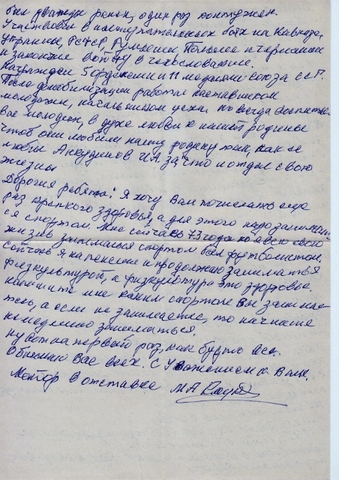 был дважды ранен, один раз контужен.
Участвовал в наступательных боях на Кавказе,
Украине, РСФСР, Румынии Польше и Германии
и закончил войну в Чехословакии.
Награжден 5 орденами и 11 медалями Союза ССР.
После демобилизации работал наставником
молодежи, начальником цеха. но всегда воспитывал
молодежь, в духе любви к нашей родине
чтоб они любили нашу родину так, как ее
любил И.А. за что и отдал свою
жизнь
Дорогие ребята! Я хочу Вам пожелать еще
раз крепкого здоровья, а для этого надо заниматься
спортом. Мне сейчас 73 года но я всю свою
жизнь занимался спортом был футболистом,
сейчас я на пенсии и продолжаю заниматься
физкультурой, а физкультура это здоровье,
напишите мне каким спортом Вы занимае-
тесь, а если не занимаетесь, то начните
немедленно заниматься.
ну вот на первый раз, как будто все.
Обнимаю Вас всех. С Уважением к Вам.
Майор в отставке